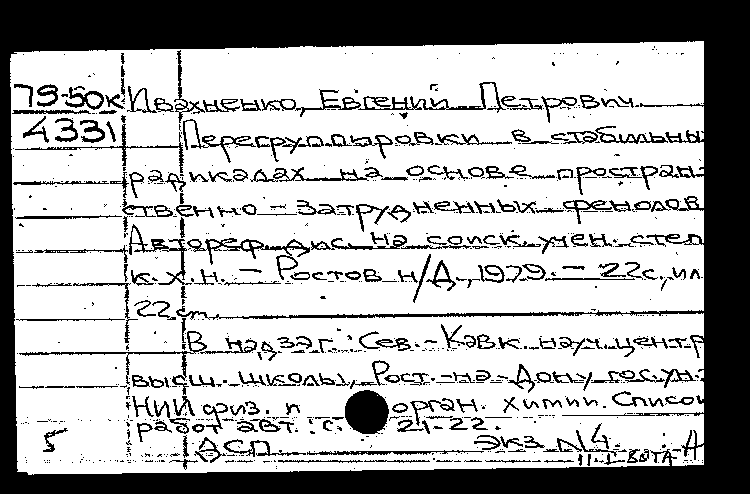 79-50к Ивахненко, Евгений Петрович
4331 Перегруппировки в стабильны
радикалах на основе простран-
ственно-затрудненных фенолов
Автореф. дис. на соиск. учен. степ
к.х.н. - Ростов н/Д., 1979. - 22с., ил
22см.
В надзаг.: Сев.-Кавк. науч. центр
высш. школы, Рост.-на-Дону гос. ун.-
НИИ физ. и орган. химии. Список
работ авт.: с. 21-22.
5 ДСП экз N4. А